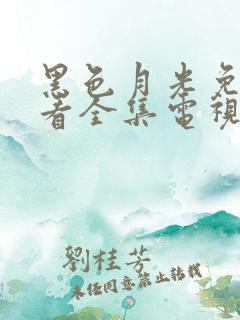 黑色月光免
看全集電視
劉桂芳
未经同意禁止转载